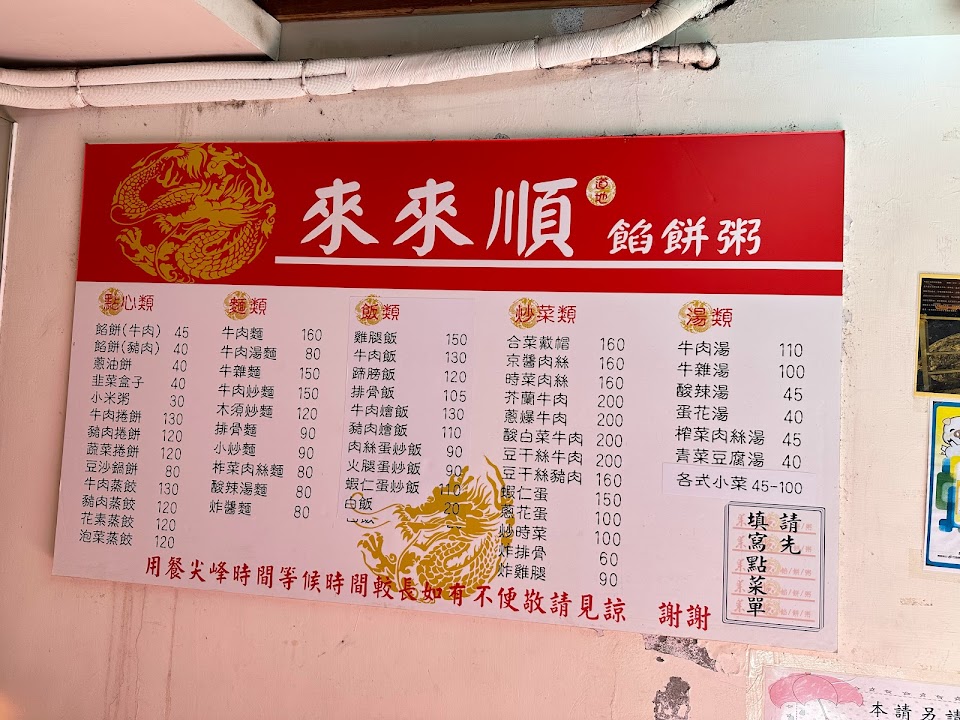 來來順 道地 餡餅粥
點心類
餡餅(牛肉) 45
餡餅(豬肉) 40
蔥油餅 40
韭菜盒子 40
小米粥 30
牛肉捲餅 130
豬肉捲餅 120
蔬菜捲餅 120
豆沙鍋餅 80
牛肉蒸餃 130
豬肉蒸餃 120
花素蒸餃 120
泡菜蒸餃 120
麵類
牛肉麵 160
牛肉湯麵 80
牛雜麵 150
牛肉炒麵 150
木須炒麵 120
排骨麵 90
小炒麵 90
榨菜肉絲麵 80
酸辣湯麵 80
炸醬麵 80
飯類
雞腿飯 150
牛肉飯 130
蹄膀飯 120
排骨飯 105
牛肉燴飯 130
豬肉燴飯 110
肉絲蛋炒飯 90
火腿蛋炒飯 90
蝦仁蛋炒飯 110
白飯 20
炒菜類
合菜戴帽 160
京醬肉絲 160
時菜肉絲 160
芥蘭牛肉 200
蔥爆牛肉 200
酸白菜牛肉 200
豆干絲牛肉 200
豆干絲豬肉 160
蝦仁蛋 150
蔥花蛋 100
炒時菜 100
炸排骨 60
炸雞腿 90
湯類
牛肉湯 110
牛雜湯 100
酸辣湯 45
蛋花湯 40
榨菜肉絲湯 45
青菜豆腐湯 40
各式小菜 45-100
請先
填寫點菜單
用餐尖峰時間等候時間較長如有不便敬請見諒 謝謝
本請另請